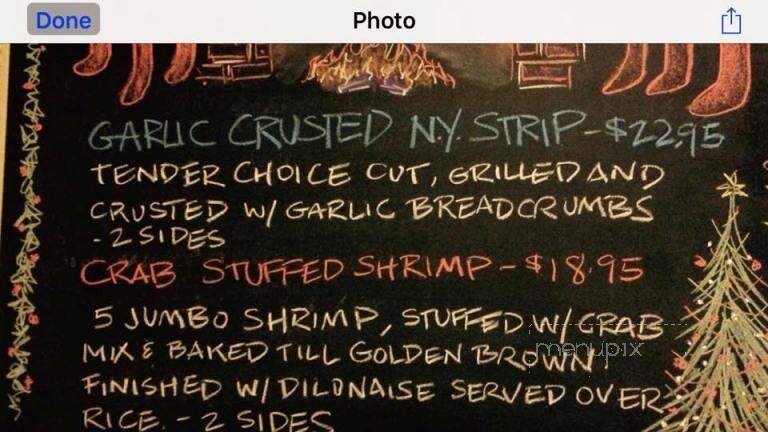 Done
Photo
GARLIC CRUSTED N.Y. STRIP - $22.95
TENDER CHOICE CUT, GRILLED AND
CRUSTED W/ GARLIC BREADCRUMBS
- 2 SIDES
CRAB STUFFED SHRIMP - $18.95
5 JUMBO SHRIMP, STUFFED W/ CRAB
MIX & BAKED TILL GOLDEN BROWN
menupix
FINISHED W/ DILONAISE SERVED OVER
RICE. - 2 SIDES